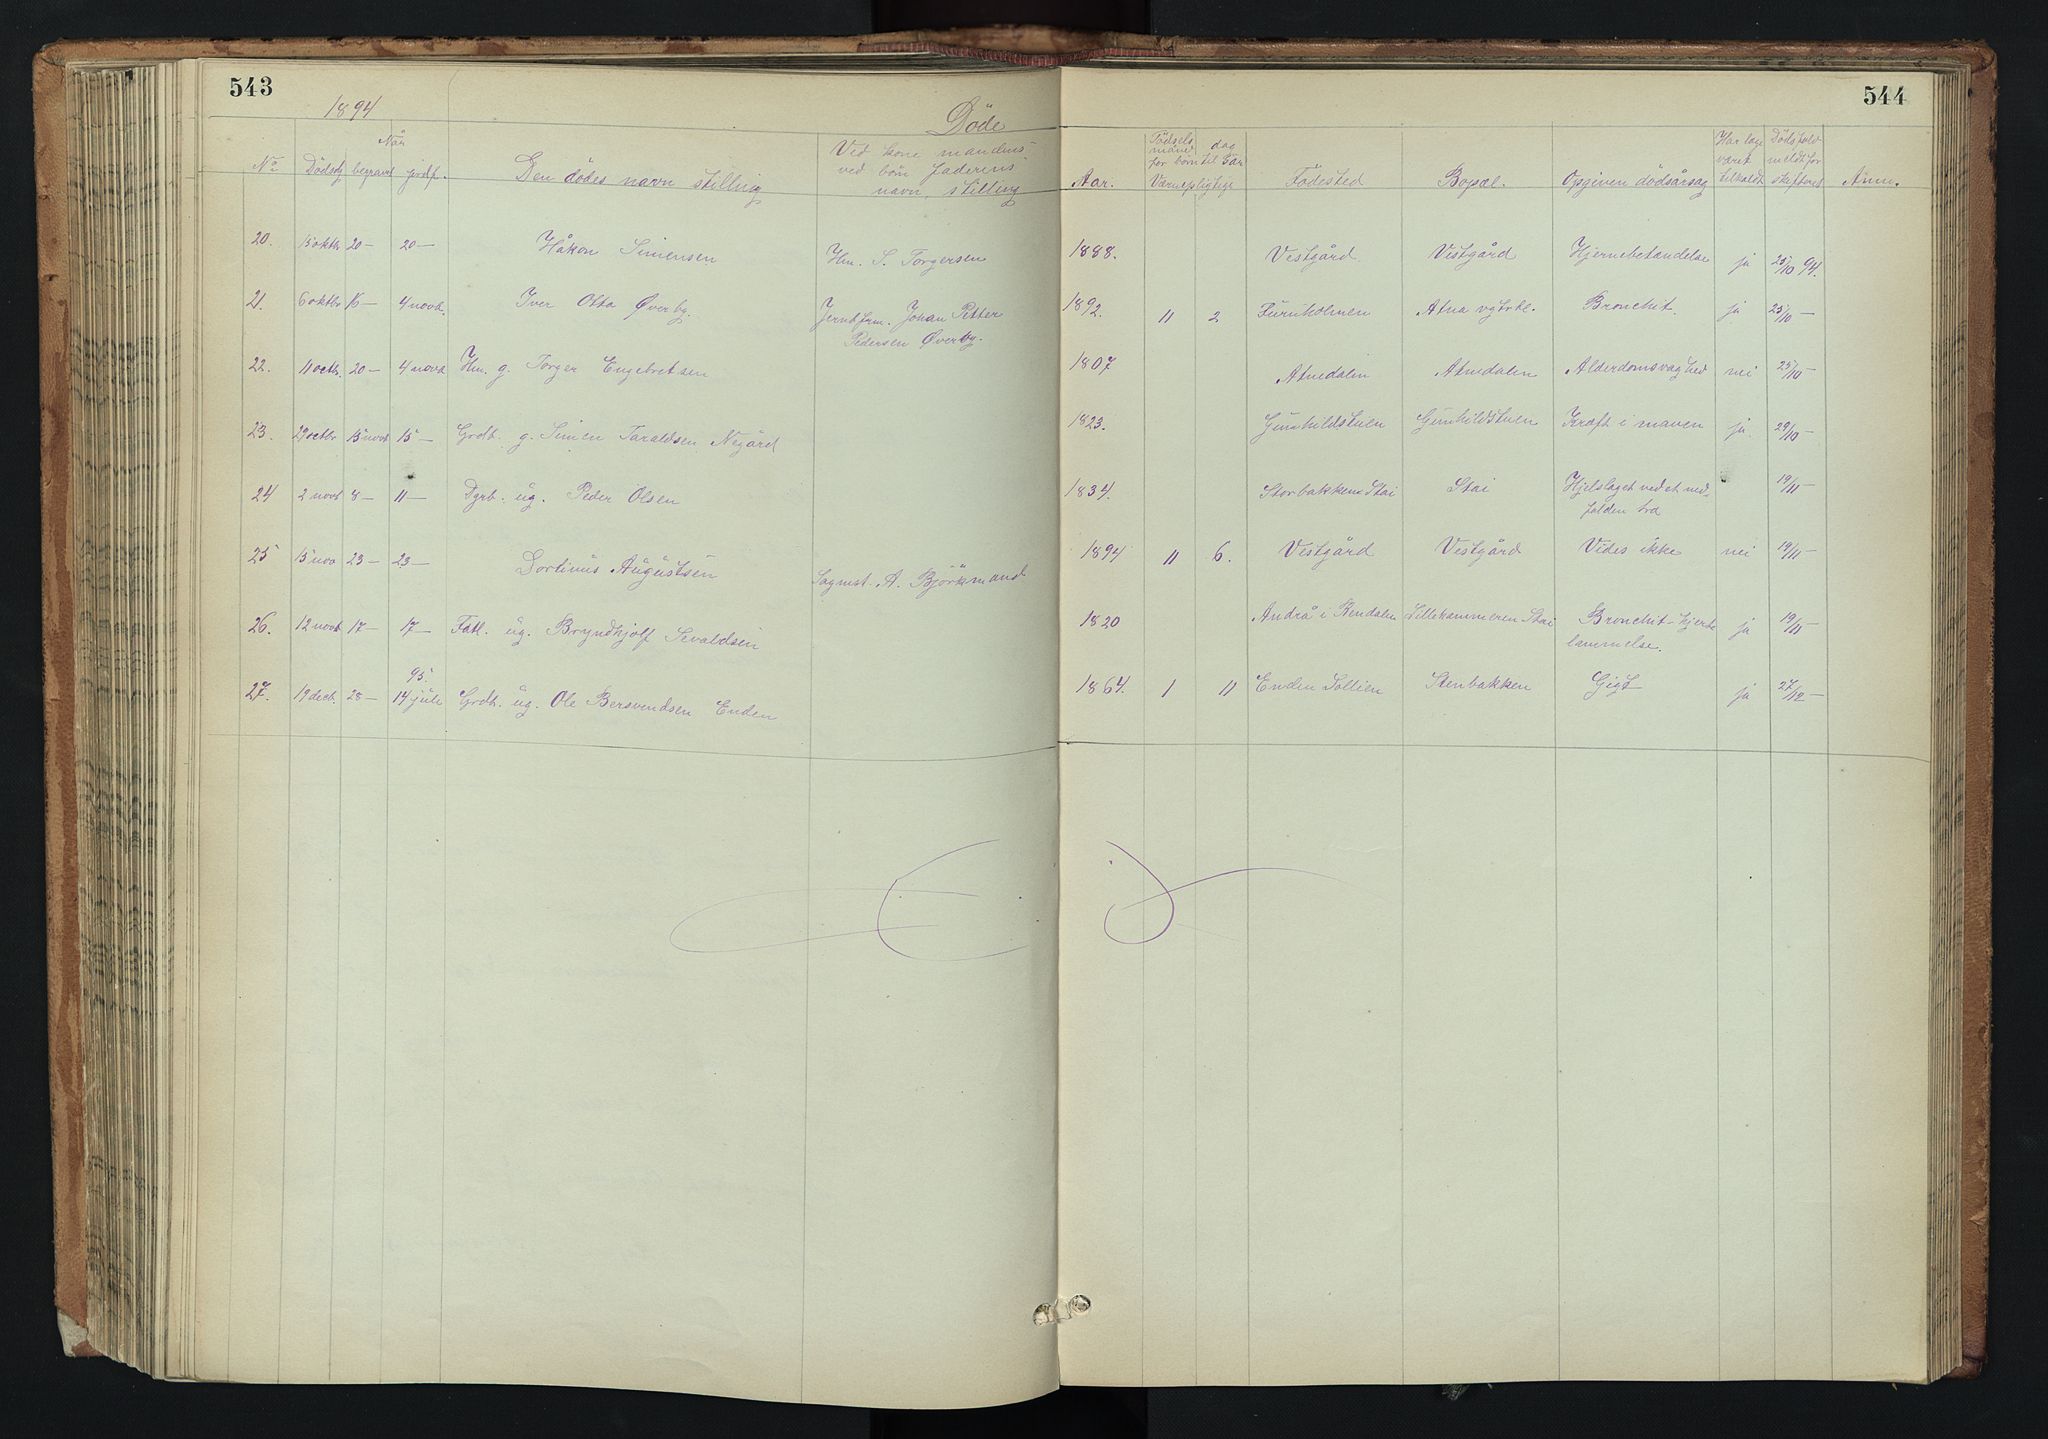 543
544
1894
Døde
Når
No Dødsdg begravet jordf. Den dødes navn stilling
Ved kone mandens
ved børn faderens
navn, stilling
Aar.
Fødsels dag
måned
for børn til 2 år
Værnepligtige
Fødested Bopæl. Opgiven dødsårsag
Har læge
været
tilkaldt
Dødsfald
meldt for
skifteret
Anm.
20. 15 oktb 20— 20— Håkon Simensen Hm. S. Torgersen 1888. Vestgård. Vestgård Hjernebetændelse ja 25/10 94.
21. 6 oktbr 15— 4 novb. Iver Otto Øverby. Jernb.frm. Johan Petter
Pedersen Øverby.
1892. 11 2 Furuholmen Atna vgtrbl. Bronchit. ja 25/10—
22. 11 octb. 20— 4 novb Hm. g. Torger Engebretsen 1807 Atnedalen Atnedalen Alderdomsvaghed nei 25/10—
23. 29 octbr 15 novb 15— Grdb. g. Simen Taraldsen Negård 1823. Gunhildstuen Gunhildstuen Kræft i maven ja. 29/10—
24 2 novb 8— 11— Dgrb. ug. Peder Olsen 1834. Storbakken Stai Stai Hjelslaget ved et ned-
falden træ
19/11—
25 15 nov 23— 23— Sortinus Augustsen Sagmst. A. Björkmand 1894 11 6. Vestgård Vestgård Vides ikke nei 19/11—
26. 12 novb 17— 17— Fatl. ug. Bryndhjolf Sevaldsen 1820 Andrå i Rendalen Lillekammeren Stai Bronchit-hjerte
lammelse.
ja 19/11—
95.
27. 19 dect. 28— 14 jule Grdb. ug. Ole Bersvendsen Enden 1864. 1 11 Enden Sollien Stenbakken Gigt ja 27/12—